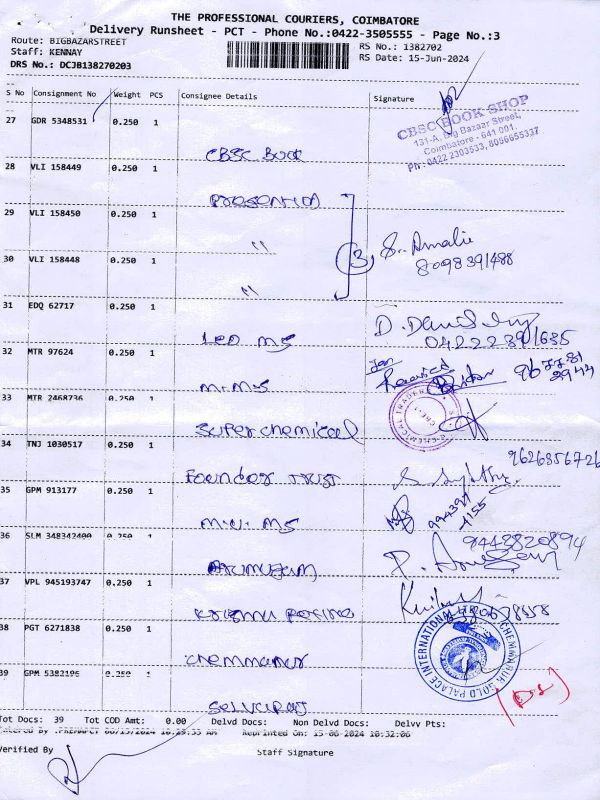 THE PROFESSIONAL COURIERS, COIMBATORE
Delivery Runsheet - PCT - Phone No.:0422-3505555 - Page No.:3
Route: BIGBAZARSTREET
RS No.: 1382702
Staff: KENNAY
RS Date: 15-Jun-2024
DRS No.: DCJB138270203
S No Consignment No Weight PCS Consignee Details Signature
27 GDR 5348531 0.250 1
CBSC Book
CBSC BOOK SHOP
Bazaar Street,
Coimbatore - 641 001.
Ph: 0422 2303533, 8056655337
28 VLI 158449 0.250 1
29 VLI 158450 0.250 1
"
30 VLI 158448 0.250 1
"
(3)
S. Amalie
8098391488
31 EDQ 62717 0.250 1
Leo MS
D. David
32 MTR 97624 0.250 1
M.M.S
Received
33 MTR 2468736 0.250 1
Super chemical
34 TNJ 1030517 0.250 1
Founder Trust
9626356726
35 GPM 913177 0.250 1
M.U. MS
36 SLM 348342400 0.250 1
Arumugam
9442820894
37 VPL 945193747 0.250 1
38 PGT 6271838 0.250 1
Chemmanur
CHEMMANUR GOLD PALACE INTERNATIONAL
39 GPM 5382196 0.250 1
Selvaraj
Tot Docs: 39 Tot COD Amt: 0.00 Delvd Docs: Non Delvd Docs: Delvy Pts:
Entered By : 06/15/2024 10:29:33 AM Reprinted On: 15-06-2024 10:32:06
Verified By
Staff Signature